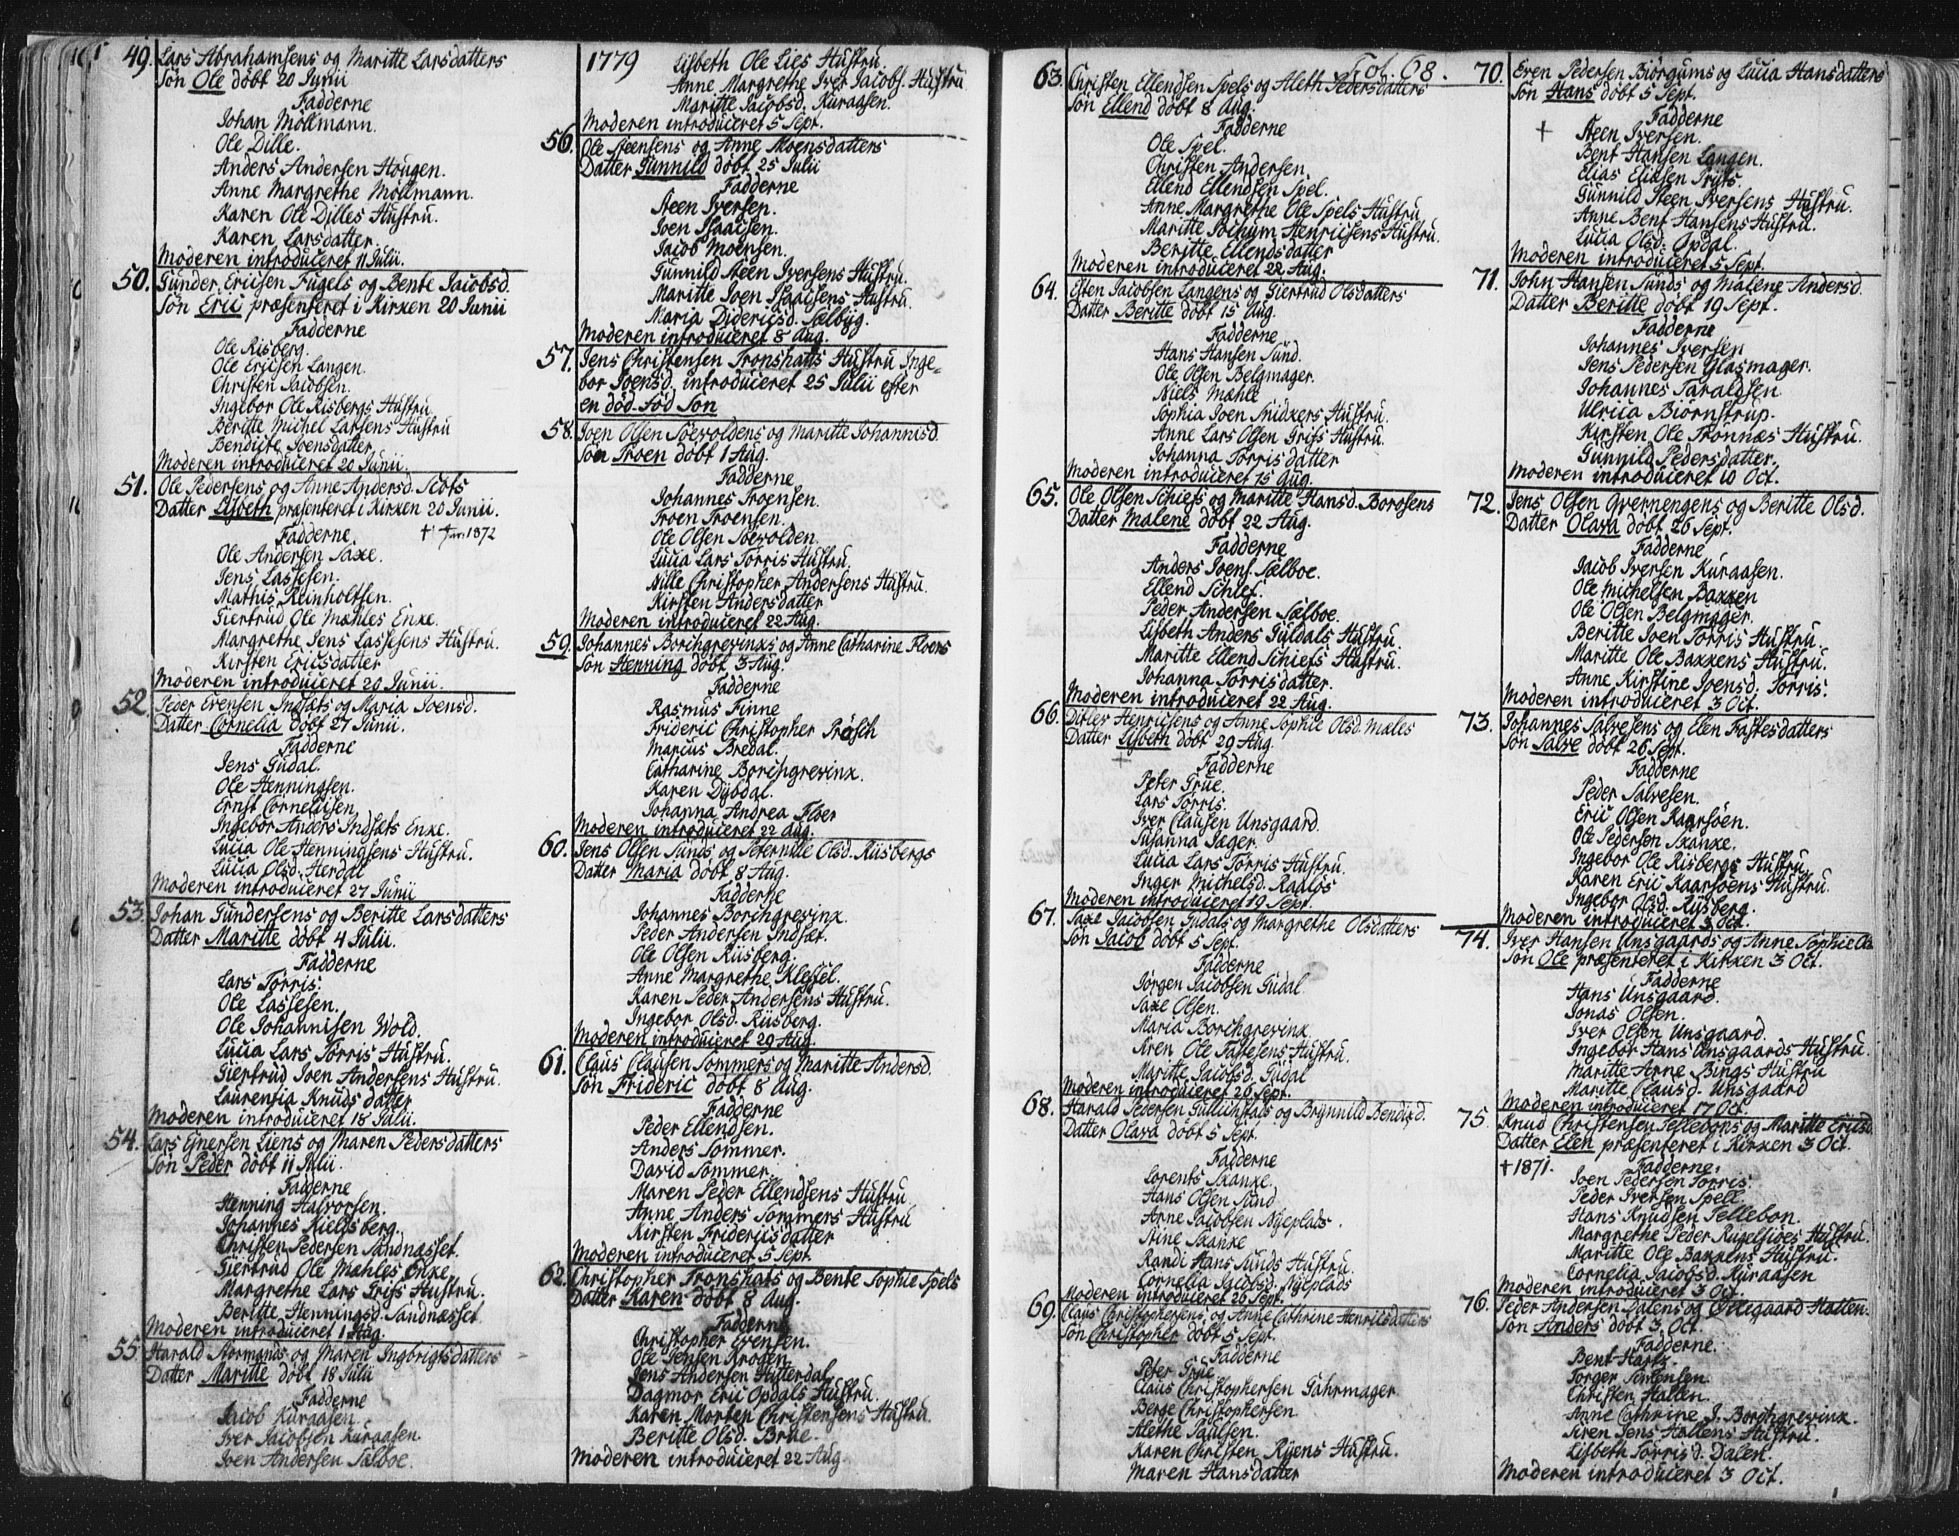 49. Lars Abrahamsens og Maritte Larsdatters
Søn Ole døbt 20 Junii
Fadderne
Johan Möllmann.
Ole Dille.
Anders Andersen Hougen.
Anne Margrethe Möllmann.
Karen Ole Dilles Hustru.
Karen Larsdatter.
Moderen introduceret 11 Julii.
50. Gunder Ericsen Fugels og Bente Jacobsd.
Søn Eric præsenteret i Kirken 20 Junii
Fadderne
Ole Risberg.
Ole Ericsen Langen.
Christen Jacobsen.
Ingebor Ole Risbergs Hustru
Beritte Michel Larsens Hustru
Bendicte Joensdatter
Moderen introduceret 20 Junii.
51. Ole Pedersens og Anne Andersd. Scots
Datter Lisbeth præsenteret i Kirken 20 Junii.
Fadderne. † Jan. 1872
Ole Andersen Saxe.
Jens Lassesen.
Mathis Reinholtsen.
Giertrud Ole Mæhles Enke.
Margrethe Jens Lassesens Hustru.
Kirsten Ericsdatter
Moderen introduceret 20 Junii.
52. Peder Evensen Indsæts og Maria Joensd.
Datter Cornelia døbt 27 Junii.
Fadderne
Jens Gudal.
Ole Henningsen.
Ernst Cornelisen
Ingebor Anders Indsæts Enke.
Lucia Ole Henningsens Hustru.
Lucia Olsd. Herdal
Moderen introduceret 27 Junii
53. Johan Gundersens og Beritte Larsdatters
Datter Maritte døbt 4 Julii.
Fadderne
Lars Torris.
Ole Lassesen.
Ole Johannisen Wold.
Lucia Lars Torris Hustru.
Giertrud Joen Andersens Hustru.
Laurentia Knuds datter
Moderen introduceret 18 Julii.
54. Lars Enersen Liens og Maren Pedersdatters
Søn Peder døbt 11 Julii.
Fadderne
Henning Halvorsen.
Johannes Kieldsberg.
Christen Pedersen Sandnæsset.
Giertrud Ole Mæhles Enke.
Margrethe Lars Friis Hustru.
Beritte Henningsd. Sandnæsset
Moderen introduceret 1 Aug.
55. Harald Normands og Maren Ingbrigtsdatters
Datter Maritte døbt 18 Julii
Fadderne
Jacob Kuraasen.
Iver Jacobsen Kuraasen.
Joen Andersen Sælboe.
1779 Lisbeth Ole Lies Hustru.
Anne Margrethe Iver Jacobs. Hustru
Maritte Jacobsd. Kuraasen.
Moderen introduceret 5 Sept.
56. Ole Steensens og Anne Moensdatters
Datter Gunnild døbt 25 Julii
Fadderne
Steen Iversen.
Joen Isaacsen.
Jacob Moensen.
Gunnild Steen Iversens Hustru.
Maritte Joen Isaacsens Hustru.
Maria Didericsd. Sælbyg.
Moderen introduceret 8 Aug.
57. Jens Christensen Tronshatts Hustru Inge=
bor Joensd. introduceret 25 Julii efter
en død-fød Søn
58. Joen Olsen Soevoldens og Maritte Johannisd.
Søn Troen døbt 1 Aug.
Fadderne
Johannes Troensen.
Troen Troensen.
Ole Olsen Soevolden.
Lucia Lars Torris Hustru.
Nille Christopher Andersens Hustru.
Kirsten Andersdatter
Moderen introduceret 22 Aug.
59. Johannes Borchgrevinks og Anne Catharine Floers
Søn Henning døbt 3 Aug.
Fadderne
Rasmus Finne
Frideric Christopher Prøsch
Marcus Bredal.
Catharine Borchgrevink.
Karen Dybdal.
Johanna Andrea Floer
Moderen introduceret 22 Aug.
60. Jens Olsen Sunds og Peternille Olsd. Riisbergs
Datter Maria døbt 8 Aug.
Fadderne
Johannes Borchgrevink.
Peder Andersen Indsæt.
Ole Olsen Riisberg.
Anne Margrethe Klessel.
Karen Peder Andersens Hustru.
Ingebor Olsd. Riisberg.
Moderen introduceret 29 Aug.
61. Claus Clausen Sommers og Maritte Andersd.
Søn Frideric døbt 8 Aug.
Fadderne
Peder Ellendsen.
Anders Sommer.
David Sommer.
Maren Peder Ellendsens Hustru
Anne Anders Sommers Hustru
Kirsten Fridericsdatter
Moderen introduceret 5 Sept.
62. Christopher Tronshats og Bente Sophie Spels
Datter Karen døbt 8 Aug.
Fadderne
Christopher Evensen.
Ole Jensen Krogen.
Jens Andersen Hitterdal.
Dagmor Eric Opdals Hustru.
Karen Morten Christensens Hustru.
Beritte Olsd. Brue.
Moderen introduceret 22 Aug.
Fol. 68.
63. Christen Ellendsen Spels og Aleth Pedersdatters
Søn Ellend døbt 8 Aug.
Fadderne
Ole Spel.
Christen Andersen.
Ellend Ellendsen Spel.
Anne Margrethe Ole Spels Hustru
Maritte Jochum Henricsens Hustru.
Beritte Ellendsdatter
Moderen introduceret 22 Aug.
64. Esten Jacobsen Langens og Giertrud Olsdatters
Datter Beritte døbt 15 Aug.
Fadderne
Hans Hansen Sund.
Ole Olsen Belgmager.
Niels Mæhle
Sophia Joen Snidkers Hustru.
Anne Lars Olsen Friis Hustru.
Johanna Torris datter
Moderen introduceret 15 Aug.
65. Ole Olsen Schiefs og Maritte Hansd. Borosens
Datter Malene døbt 22 Aug.
Fadderne
Anders Joens. Sælboe.
Ellend Schief.
Peder Andersen Sælboe.
Lisbeth Anders Guldals Hustru.
Maritte Ellend Schiefs Hustru.
Johanna Torrisdatter.
Moderen introduceret 22 Aug.
66. Ditlef Henricsens og Anne Sophie Olsd. Mæles
Datter Lisbeth døbt 29 Aug.
† Fadderne
Peter Grue.
Lars Torris.
Iver Clausen Unsgaard.
Susanna Jager.
Lucia Lars Torris Hustru.
Inger Michelsd. Raaløs
Moderen introduceret 19 Sept.
67. Saxe Jacobsen Gudals og Margrethe Olsdatters
Søn Jacob døbt 5 Sept.
Fadderne
Jørgen Jacobsen Gudal
Saxe Olsen.
Maria Borchgrevink
Siren Ole Fastesens Hustru.
Maritte Jacobsd. Gudal
Moderen introduceret 26 Sept.
68. Harald Pedersen Gullichstads og Brynnild Bendixd.
Datter Olava døbt 5 Sept.
Fadderne
Lorents Skanke.
Hans Olsen Sund
Arne Jacobsen Nyeplads.
Stine Skanke
Randi Hans Sunds Hustru
Cornelia Jacobsd. Nyeplads
Moderen introduceret 26 Sept.
69. Claus Christophersens og Anne Cathrine Henricsdatters
Søn Christopher døbt 5 Sept.
Fadderne
Peter Grue
Claus Christophersen Fahrmager
Berge Christophersen
Alethe Paulsen.
Karen Christen Ryens Hustru.
Maren Hansdatter
70. Even Pedersen Biørgums og Lucia Hansdatters
Søn Hans døbt 5 Sept.
Fadderne
† Steen Iversen.
Bent Hansen Langen.
Elias Eliesen Fryts.
Gunnild Steen Iversens Hustru.
Anne Bent Hansens Hustru.
Lucia Olsd. Opdal.
Moderen introduceret 5 Sept.
71. John Hansen Sunds og Malene Andersd.
Datter Beritte døbt 19 Sept.
Fadderne
Johannes Iversen
Jens Pedersen Glasmager.
Johannes Taraldsen
Ulrica Biørnstrup.
Kirsten Ole Trønnæs Hustru.
Gunnild Pedersdatter.
Moderen introduceret 10 Oct.
72. Jens Olsen Qvernengens og Beritte Olsd.
Datter Olava døbt 26 Sept.
Fadderne
Jacob Iversen Kuraasen.
Ole Michelsen Bakken
Ole Olsen Belgmager.
Beritte Joen Torris Hustru
Maritte Ole Bakkens Hustru.
Anne Kirstine Joensd. Torris.
Moderen introduceret 3 Oct.
73. Johannes Salvesens og Elen Fastesdatters
Søn Salve døbt 26 Sept.
Fadderne
Peder Salvesen.
Eric Olsen Kaarsøen.
Ole Pedersen Skanke.
Ingebor Ole Risbergs Hustru
Karen Eric Kaarsøens Hustru.
Ingebor Olsd. Riisberg.
Moderen introduceret 3 Oct.
74. Iver Hansen Unsgaards og Anne Sophie
Søn Ole præsenteret i Kirken 3 Oct.
Fadderne
Hans Unsgaard.
Jonas Olsen.
Iver Olsen Unsgaard.
Ingebor Hans Unsgaards Hustru.
Maritte Arne Bings Hustru
Maritte Clausd. Unsgaard
Moderen introduceret 17 Oct.
75. Knud Christensen Tellebons og Maritte Ericsd.
Datter Elen præsenteret i Kirken 3 Oct.
† 1871. Fadderne.
Joen Pedersen Torris.
Peder Iversen Spell
Hans Knudsen Tellebon.
Margrethe Peder Kugelsiøes Hustru.
Maritte Ole Bakkens Hustru.
Cornelia Jacobsd. Kuraasen
Moderen introduceret 3 Oct.
76. Peder Andersen Dalens og Ødegaard Hatten.
Søn Anders døbt 3 Oct.
Fadderne.
Bent Hartz.
Torger Simensen.
Christen Hatten.
Anne Cathrine J. Borchgrevink.
Siren Jens Hattens Hustru.
Lisbeth Torrisd. Dalen.
Moderen introduceret 3 Oct.